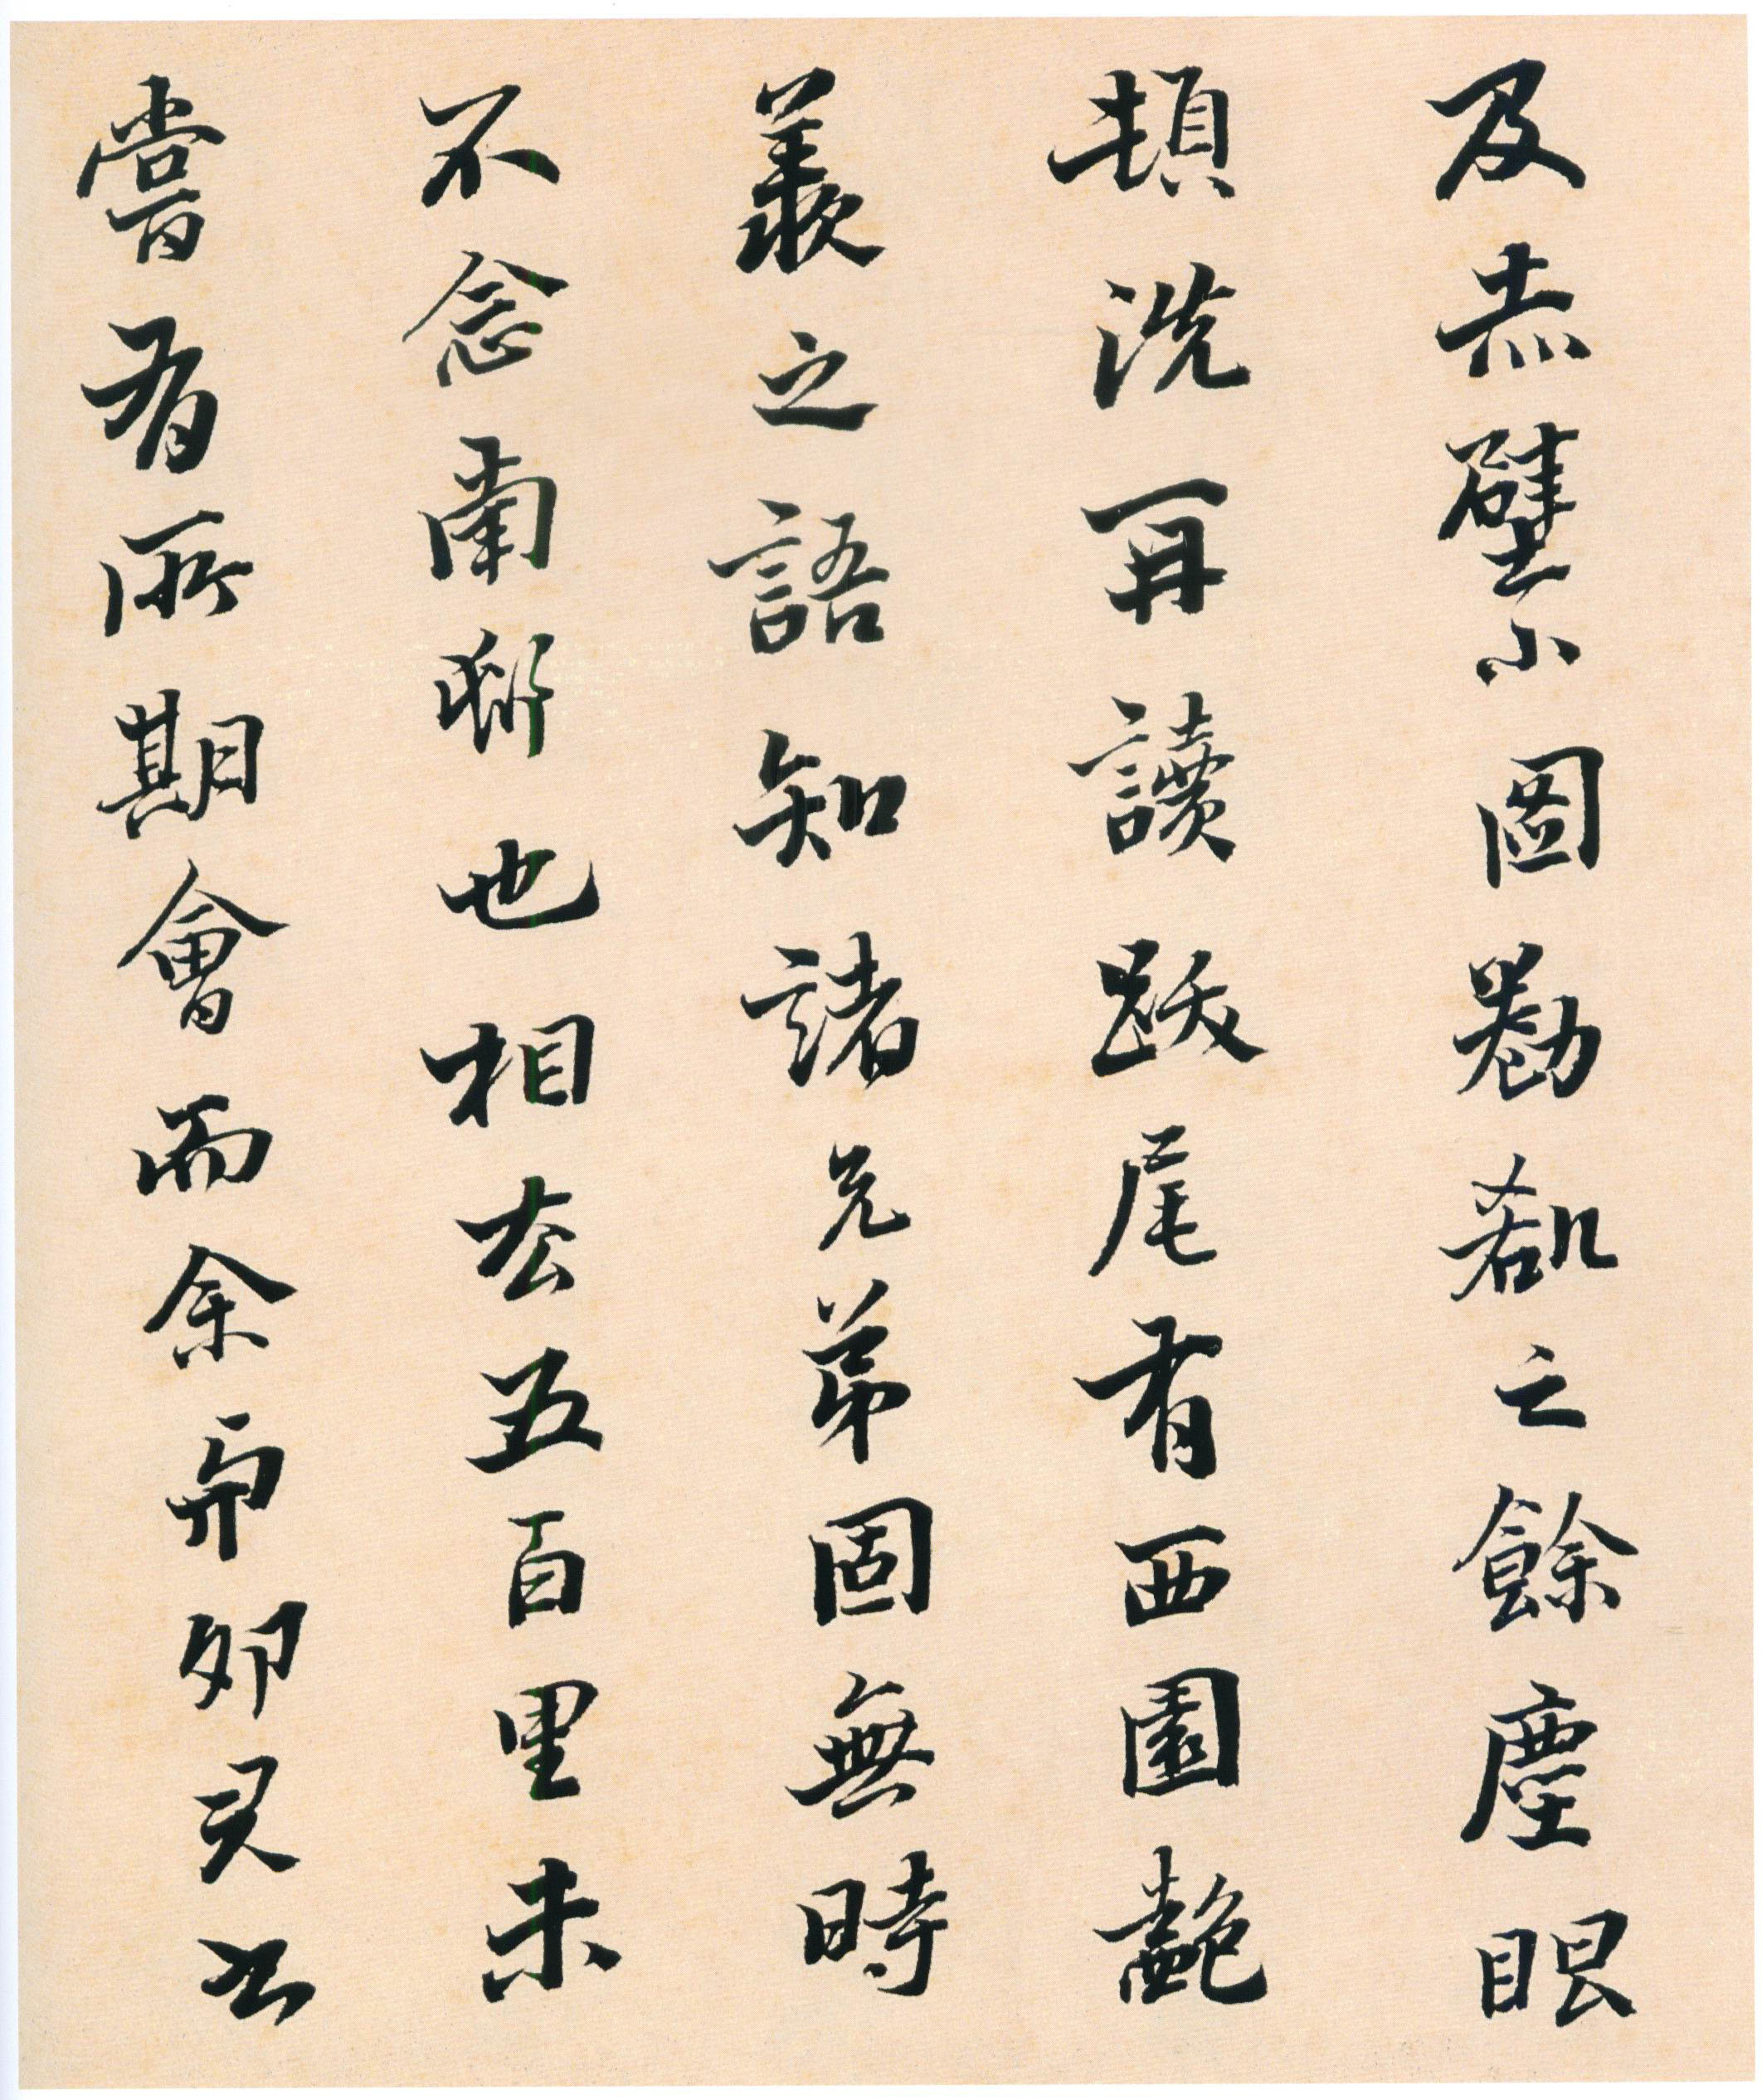 及赤壁小圖勘之餘塵眼
頓洗再讀跋尾有西園艶
羨之語知諸兄弟固無時
不念南也相去五百里未
嘗有所期會而余卯